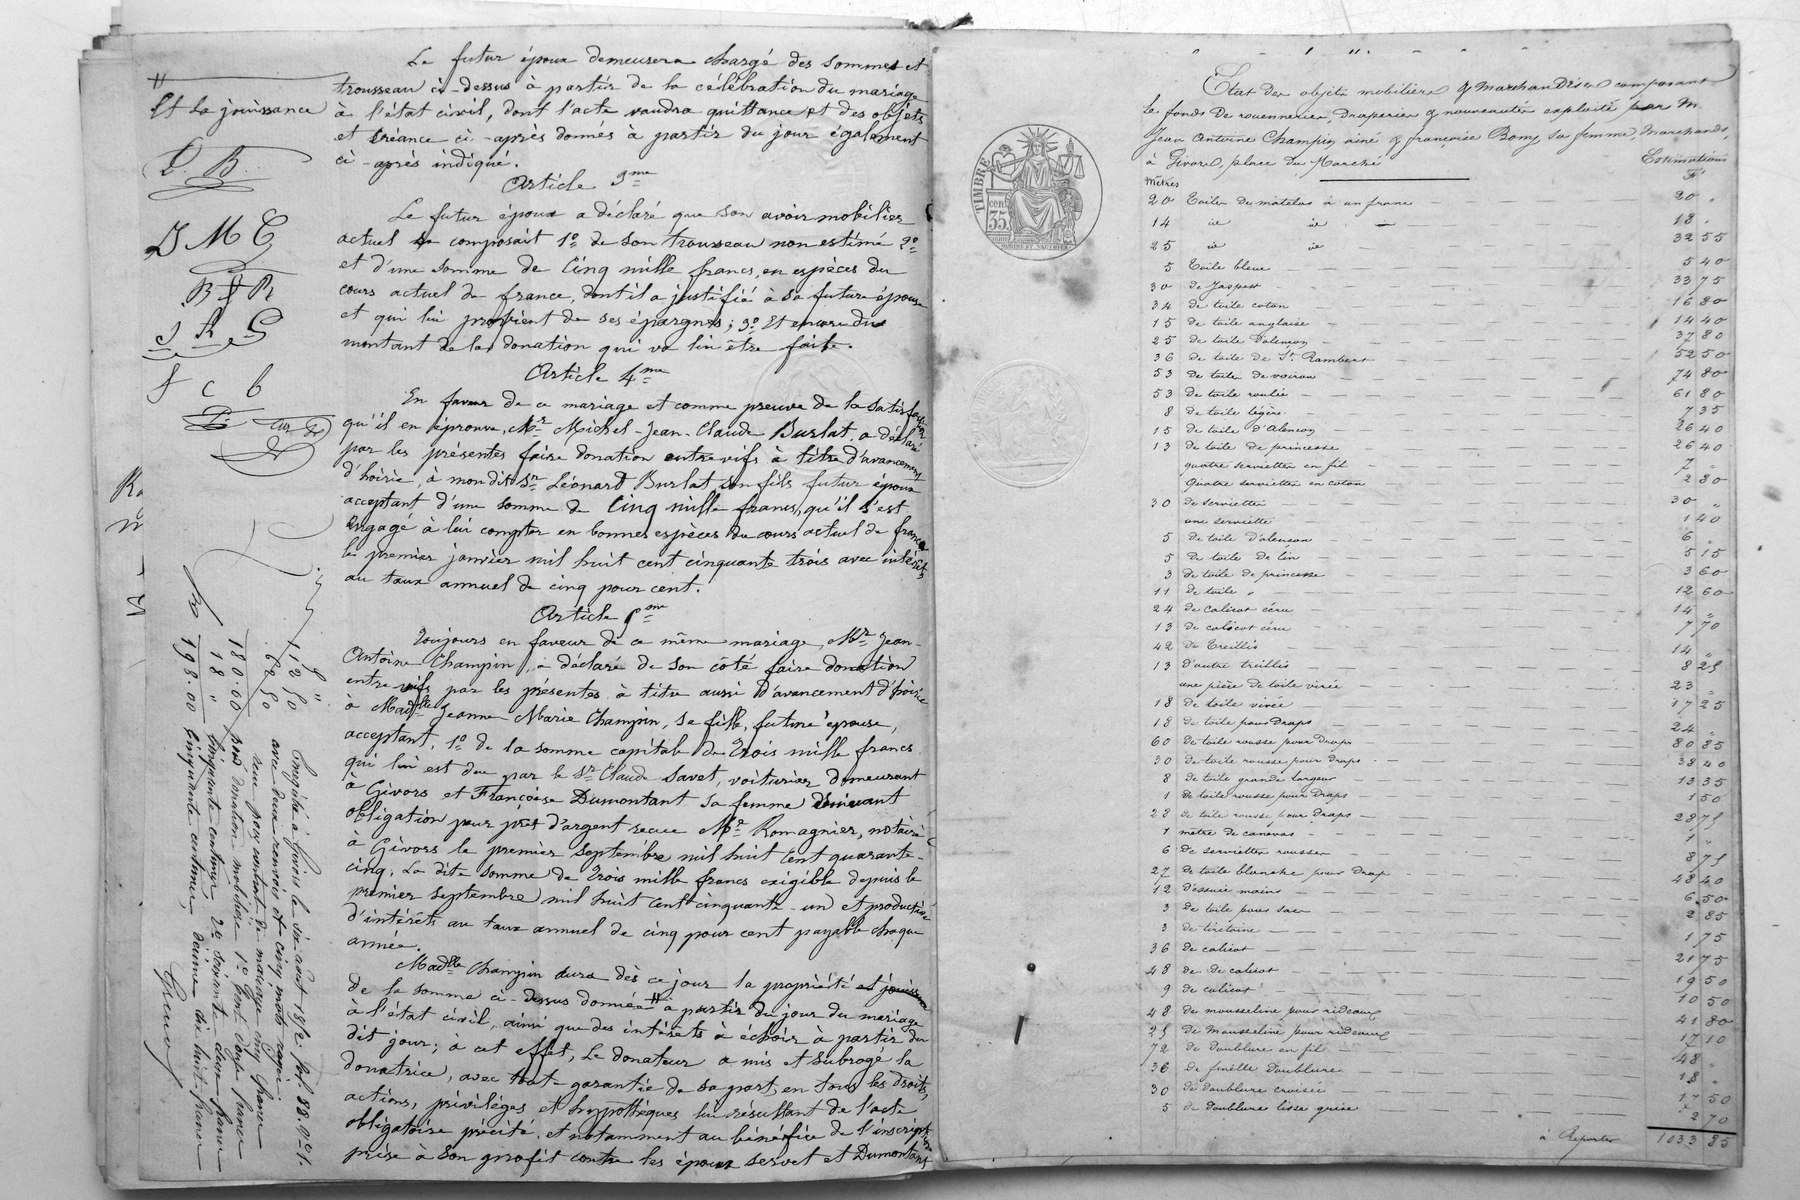 Le futur époux demeurera chargé des sommes et
trousseau ci-dessus à partir de la célébration du mariage
à l'état civil, dont l'acte vaudra quittance et des objets
et créance ci-après donnés à partir du jour également
ci-après indiqué.
Article 3me
Le futur époux a déclaré que son avoir mobilier
actuel se composait 1o de son trousseau non estimé 2o
et d'une somme de Cinq mille francs, en espèces du
cours actuel de france, dont il a justifié à sa future épouse
et qui lui provient de ses épargnes; 3o Et encore du
montant de la donation qui va lui être faite.
Article 4me
En faveur de ce mariage et comme preuve de la satisfaction
qu'il en éprouve, Mr Michel-Jean-Claude Burlat a déclaré
par les présentes faire donation entre vifs à titre d'avancement
d'hoirie, à mon dit Sr Léonard Burlat son fils futur époux
acceptant d'une somme de Cinq mille francs, qu'il s'est
engagé à lui compter en bonnes espèces du cours actuel de france
le premier janvier mil huit cent cinquante trois avec intérêts
au taux annuel de cinq pour cent.
Article 5me
Toujours en faveur de ce même mariage, Mr Jean-
Antoine Champin, a déclaré de son côté faire donation
entre vifs par les présentes à titre aussi d'avancement d'hoirie
à Madlle Jeanne Marie Champin, sa fille, future épouse,
acceptant, 1o de la somme capitale de Trois mille francs
qui lui est due par le Sr Claude Savet, voiturier demeurant
à Givors et Françoise Dumontant sa femme suivant
obligation pour prêt d'argent recue Me Romagnier, notaire
à Givors le premier septembre mil huit Cent quarante-
cinq. La dite somme de Trois mille francs exigible depuis le
premier septembre mil huit cent cinquante-un et productive
d'intérêts au taux annuel de cinq pour cent payable chaque
année.
Madlle Champin aura dès ce jour la propriété et jouissance
de la somme ci-dessus donnée # à partir du jour du mariage
à l'état civil, ainsi que des intérêts à échoir à partir du
dit jour; à cet effet, Le donateur a mis et subrogé la
donatrice, avec toute garantie de sa part, en tous les droits,
actions, priviléges et hypothèques lui résultant de l'acte
obligatoire précité, et notamment au bénéfice de l'inscription
prise à son profit contre les époux Servet et Dumontant
#
Et la jouissance
C. B.
J M C
B R
J R G
f c b
Enregistré à Givors le six août 1852. fol. 88. Vo c 1.
avec deux renvois et cinq mots rayés.
recu pour contrat de mariage cinq francs
pour donation mobilière 1o Cent douze francs
cinquante centimes 2o soixante deux francs
cinquante centimes, décime dix-huit francs
5 "
112 50
62 50
180 00
18 "
198.00
TIMBRE
35
cen.
Etat des objets mobiliers & marchandises composant
le fonds de rouennerie, draperie & nouveautés exploité par M.
Jean Antoine Champin ainé & françoise Bomy sa femme, marchands,
à Givors, place du Marché
Mètres
Estimations
Fs
20 Toiles de matelas à un franc 20 "
14 id id 18 "
25 id id 32 55
5 Toile bleue 5 40
30 de Jaspest 33 75
34 de toile coton 16 80
15 de toile anglaise 14 40
25 de toile d'alençon 37 80
36 de toile de St Rambert 52 50
53 de toiles de voiron 74 80
53 de toile roulée 61 80
8 de toile légère 7 35
15 de toile d'alençon 26 40
13 de toile de princesse 26 40
quatre serviettes en fil 7 "
quatre serviettes en coton 2 80
30 de serviettes 30 "
une serviette 1 40
5 de toile d'alençon 6 "
5 de toile de lin 5 15
3 de toile de princesse 3 60
11 de toile " 12 60
24 de calicot écru 14 "
13 de calicot écru 7 70
42 de Treillis 14 "
13 d'autre treillis 8 25
une pièce de toile virée 23 "
18 de toile virée 17 25
18 de toile pour draps 24 "
60 de toile rousse pour draps 80 85
30 de toile rousse pour draps 38 40
8 de toile grande largeur 13 35
1 de toile rousse pour draps 1 50
23 de toile rousse pour draps 28 75
1 mètre de canevas 1 "
6 de serviettes rousses 8 75
27 de toile blanche pour drap 48 40
12 d'essuie mains 6 50
3 de toile pour sacs 2 85
3 de tiretaine 1 75
36 de calicot 21 75
48 de de calicot 19 50
9 de calicot 10 50
48 de mousseline pour rideaux 41 80
25 de Mousseline pour rideaux 17 10
72 de doublure en fil 48 "
36 de finette doublure 18 "
30 de doublure croisée 17 50
5 de doublure lisse grise 2 70
à Reporter 1033 85